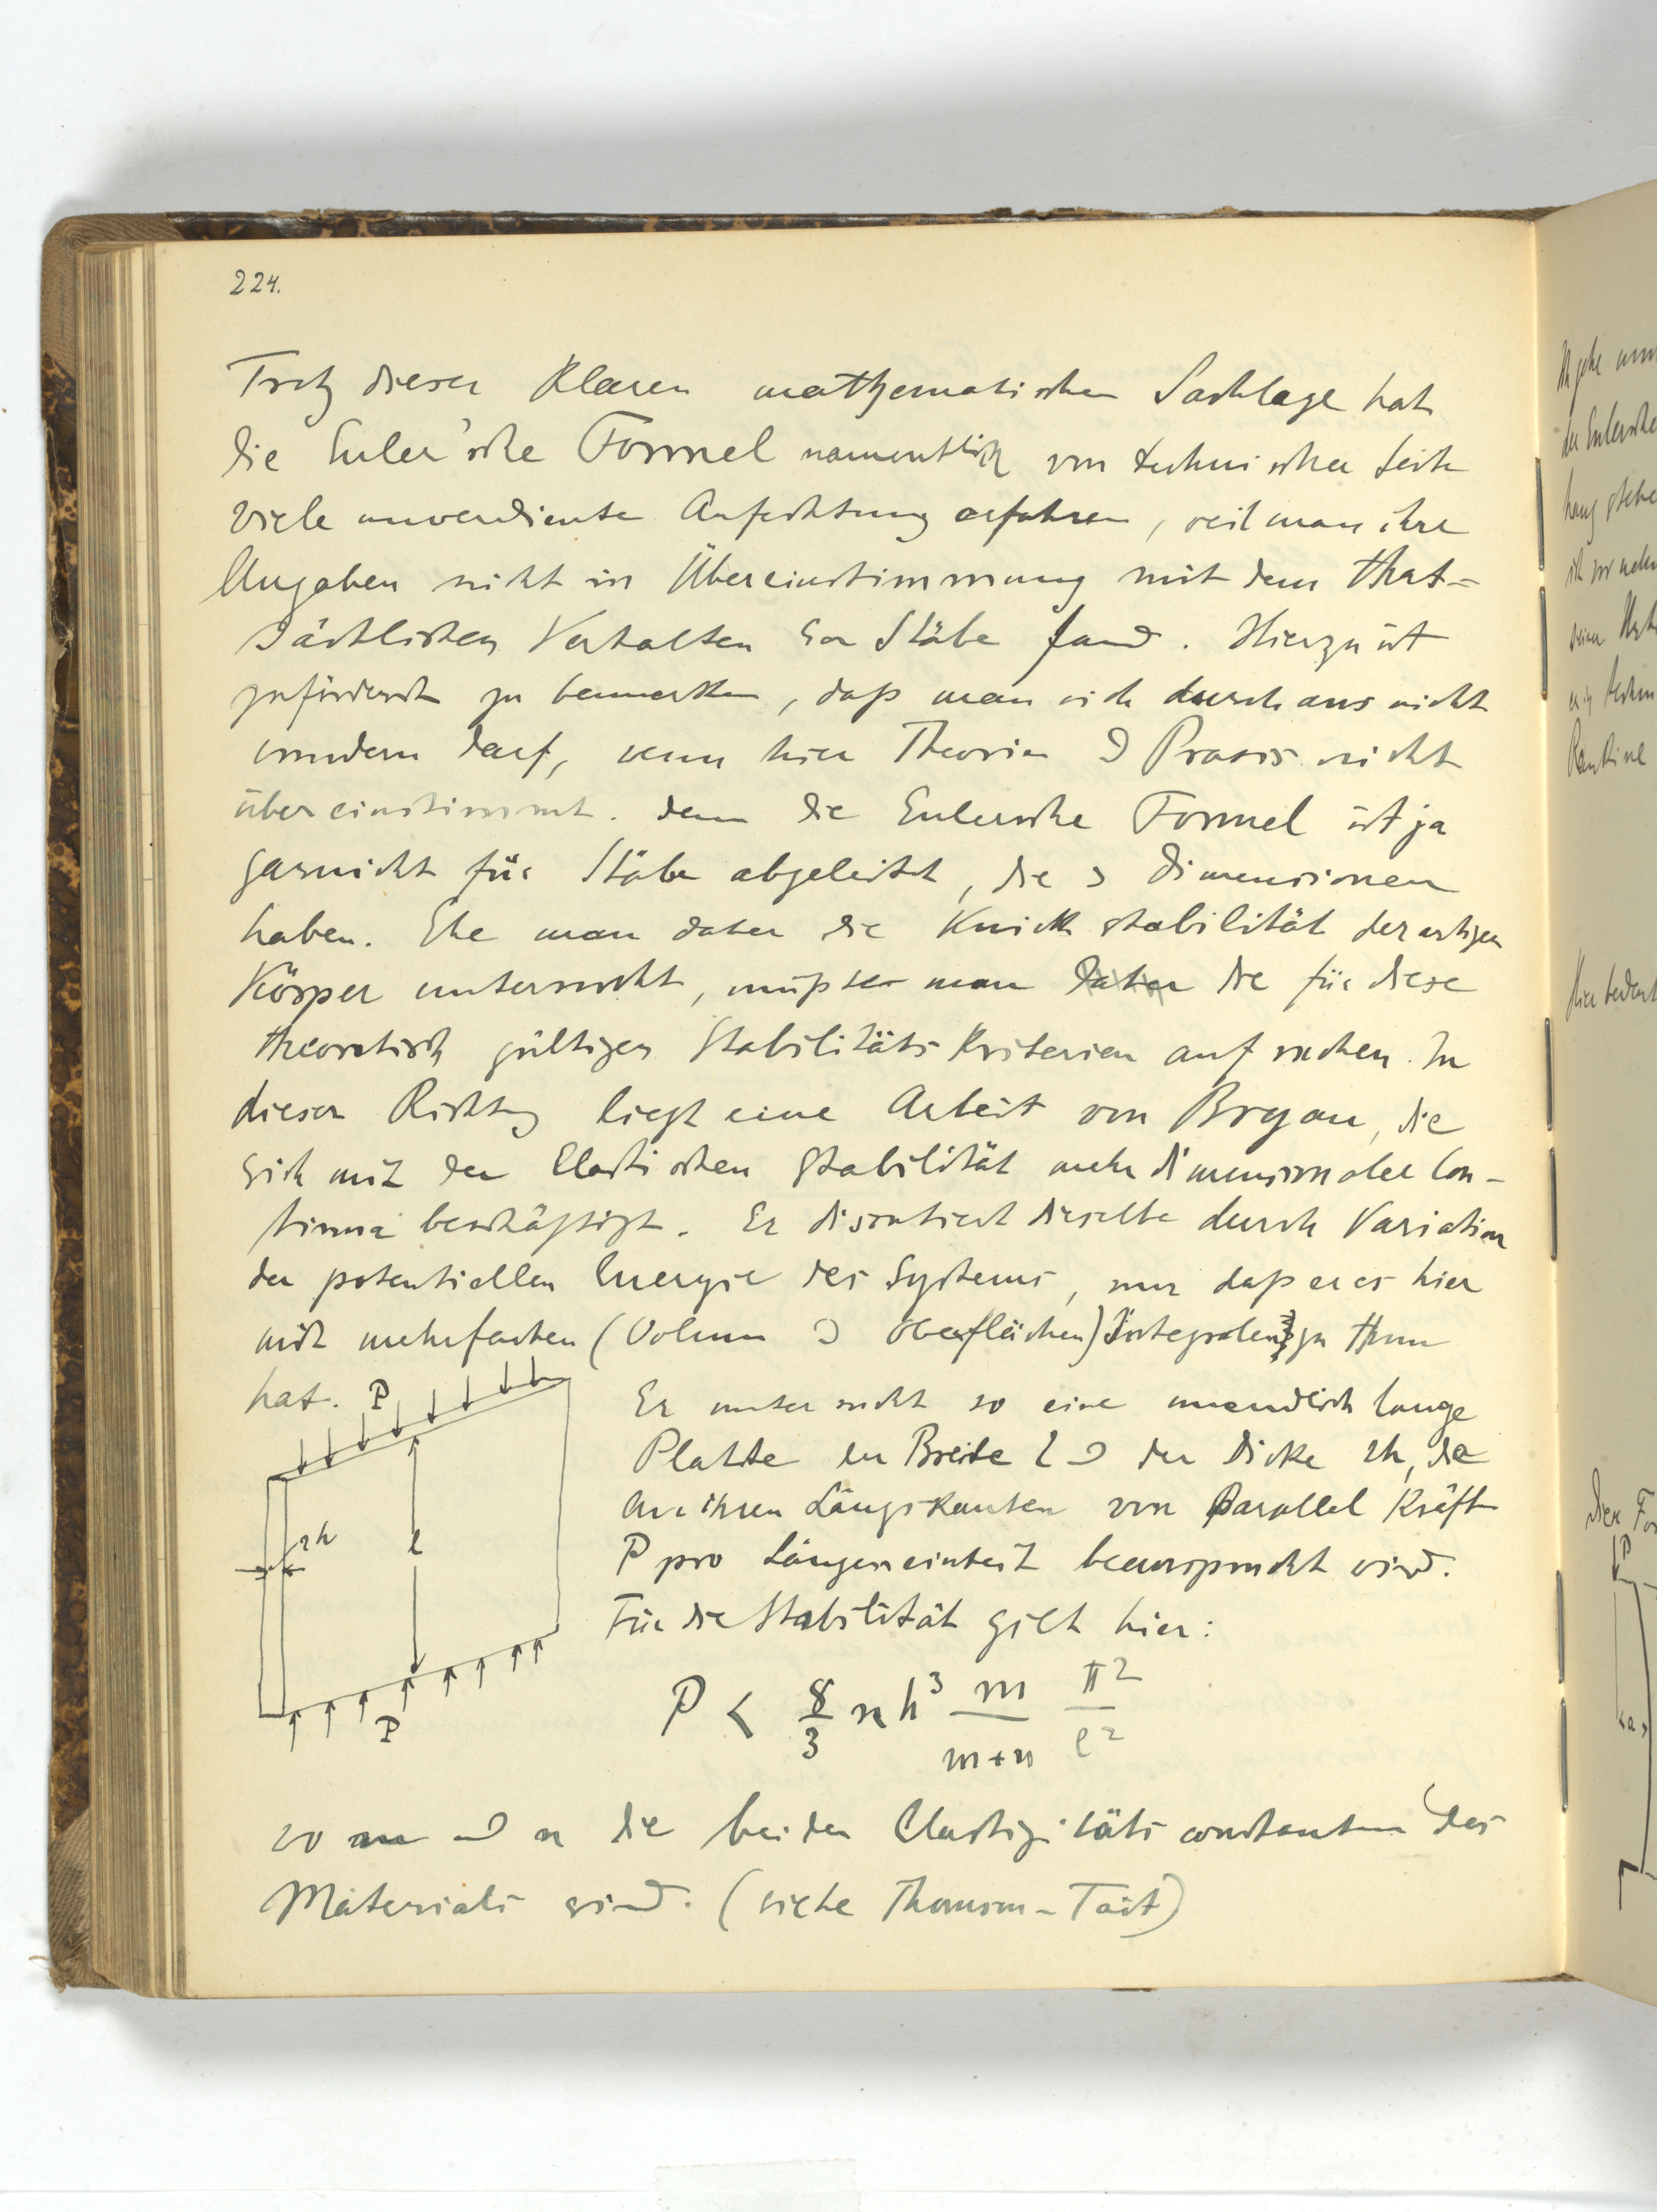 224.
Trotz dieser klaren mathematischen Sachlage hat
die Euler'sche Formel namentlich von technischer Seite
viele unverdiente Anfechtung erfahren, weil man ihre
Angaben nicht in Übereinstimmung mit dem that-
sächlichen Verhalten der Stäbe fand. Hierzu ist
zuförderst zu bemerken, daß man sich durchaus nicht
wundern darf, wenn hier Theorie & Praxis nicht
übereinstimmt. denn die Eulersche Formel ist ja
garnicht für Stäbe abgeleitet, die 3 Dimensionen
haben. Ehe man daher die Knickstabilität derartiger
Körper untersucht, müsste man daher die für diese
theoretisch gültigen Stabilitäts Kriterien aufsuchen. In
dieser Richtung liegt eine Arbeit von Bryan, die
sich mit der Elastischen Stabilität mehrdimensionaler Con-
tinua beschäftigt. Er discutiert dieselbe durch Variation
der potentiellen Energie des Systems, nur daß er es hier
mit mehrfachen (Volum & Oberflächen) Integralen zu thun
hat. P
Er untersucht so eine unendlich lange
Platte der Breite l & der Dicke 2h, die
an ihren Längskanten von Parallel Kräften
P pro Längeneinheit beansprucht wird.
Für die Stabilität gilt hier:
2h
l
P
P < 8/3 n h³ m/(m+n) π²/l²
wo m und n die beiden Elastizitätsconstanten des
Materials sind. (siehe Thomson-Tait)